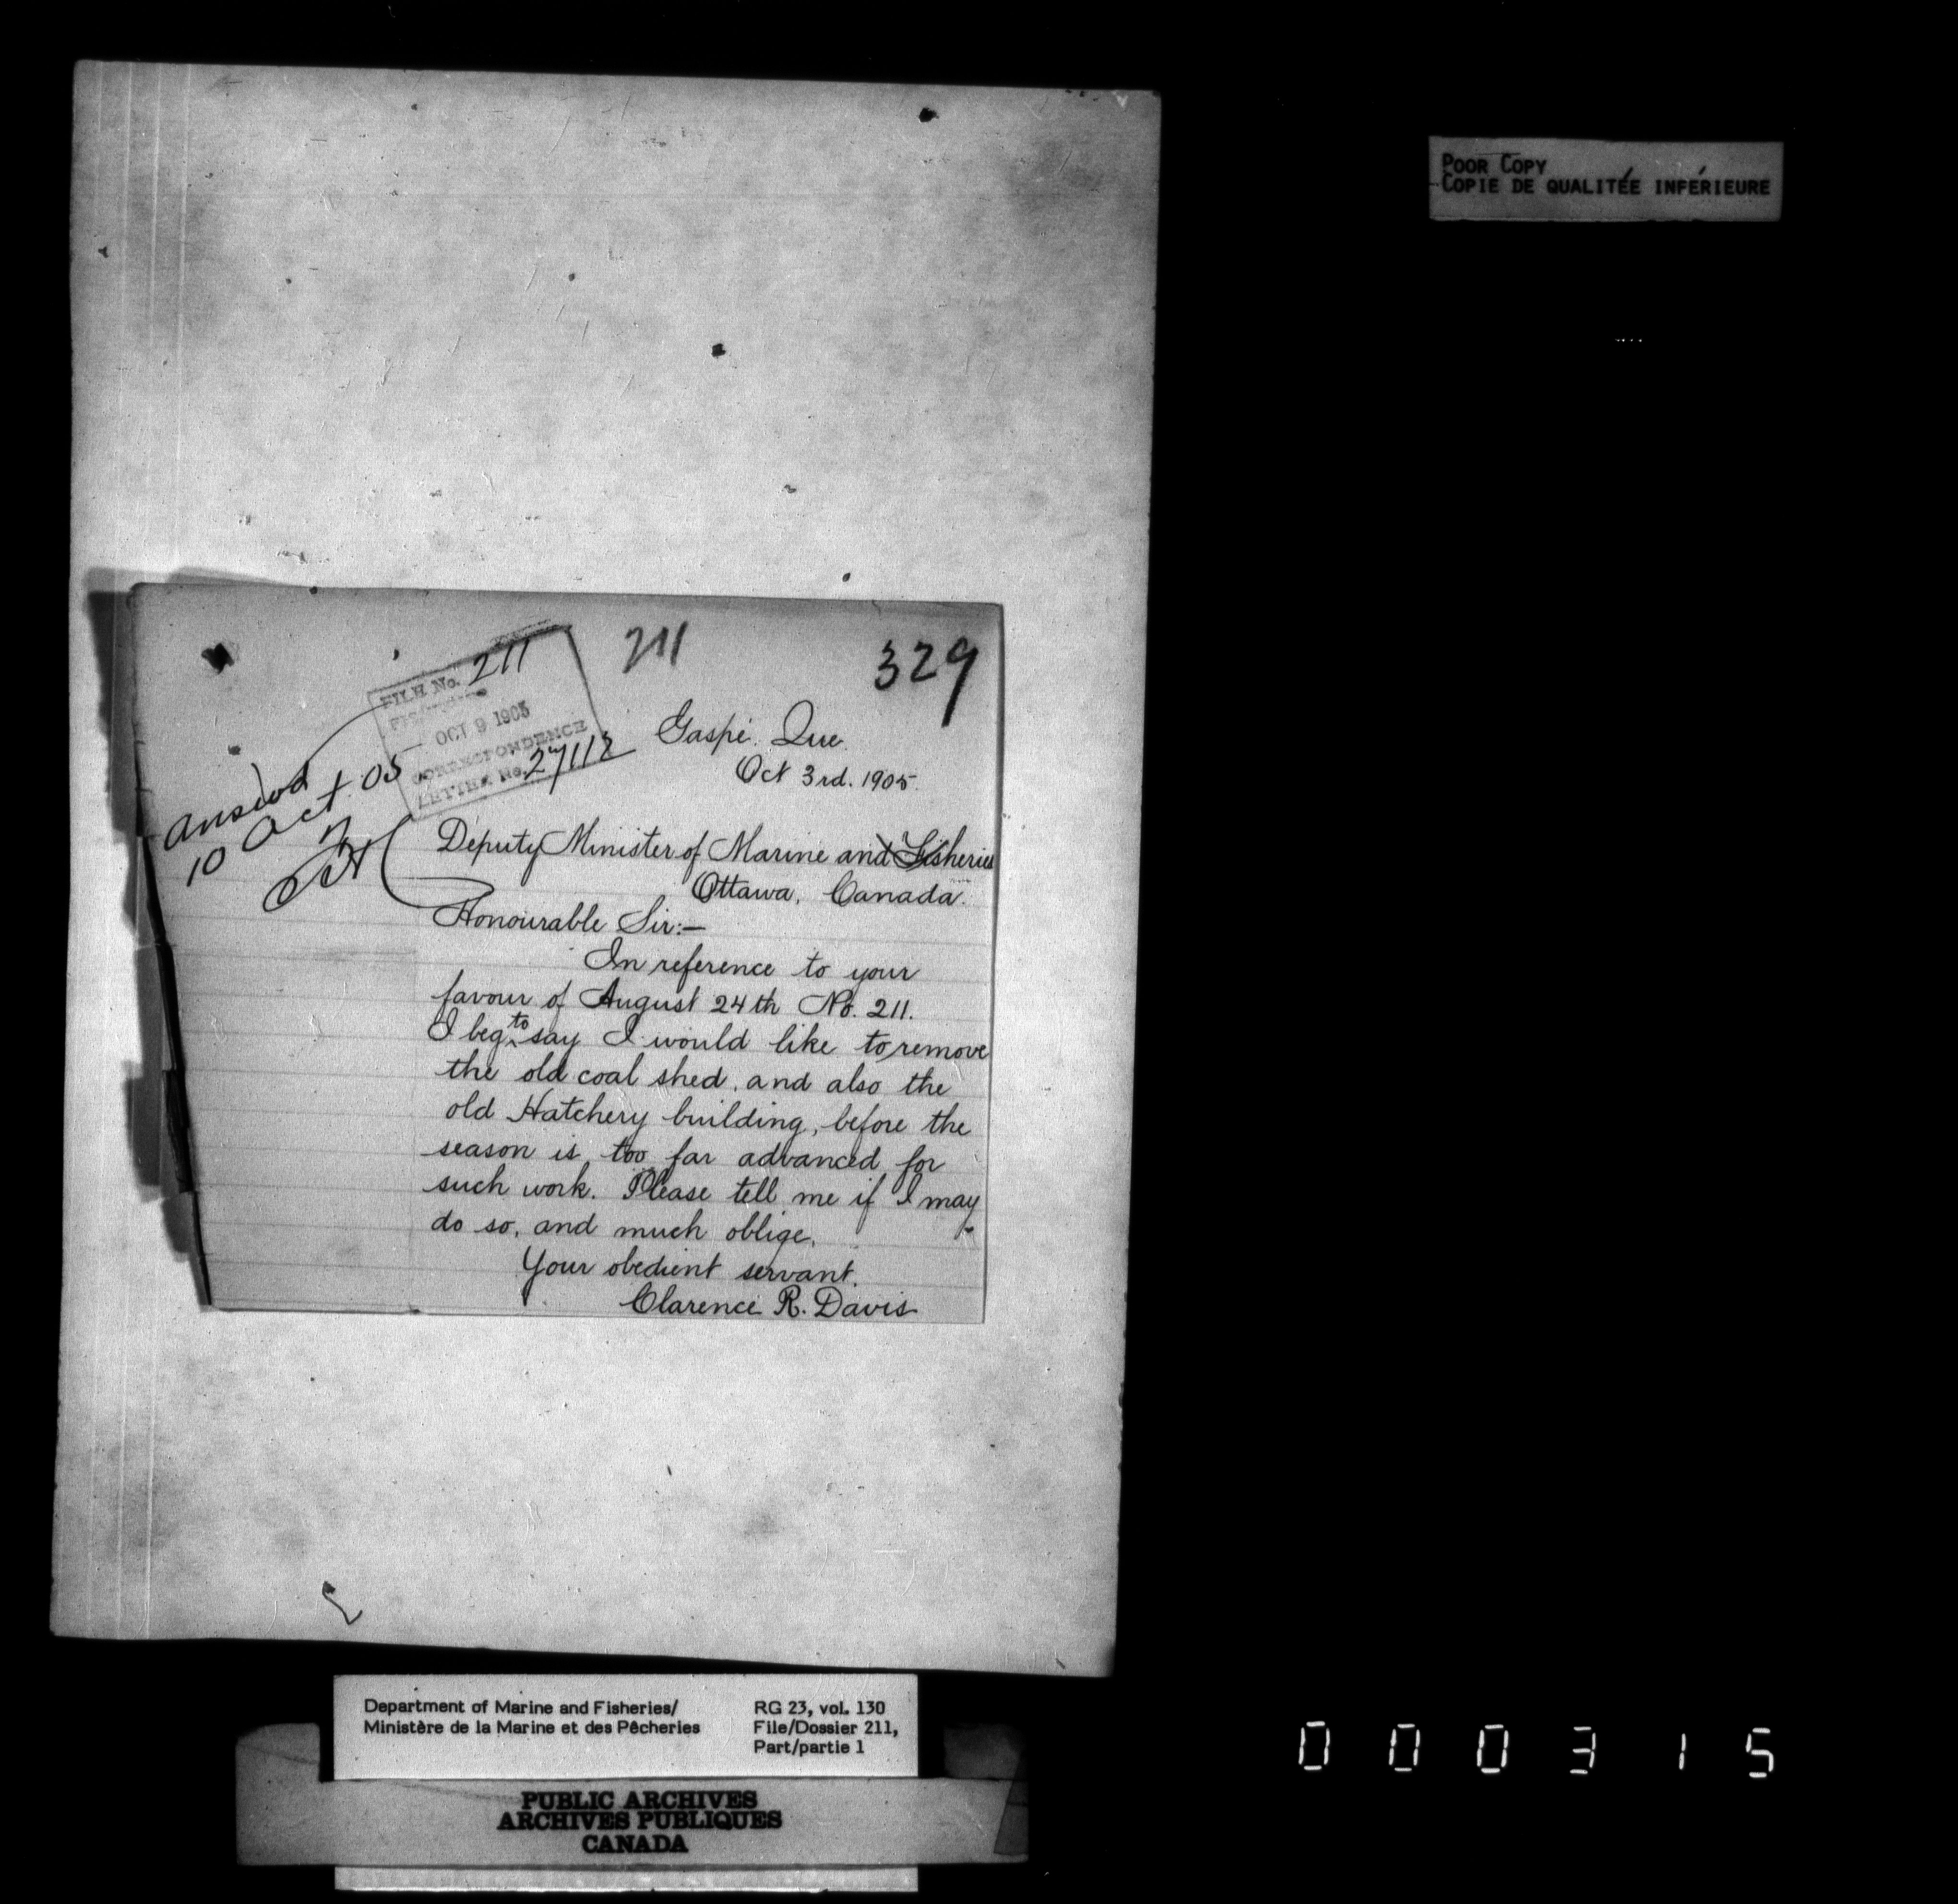 POOR COPY
COPIE DE QUALITÉE INFÉRIEURE
211
329
FILE No. 211
OCT 9 1905
CORRESPONDENCE
LETTER No. 27112
Answd
10 Oct. 05
Gaspé. Que.
Oct 3rd. 1905.
Deputy Minister of Marine and Fisheries
Ottawa, Canada.
Honourable Sir:—
In reference to your
favour of August 24th No. 211.
I beg to say I would like to remove
the old coal shed, and also the
old Hatchery building, before the
season is too far advanced for
such work. Please tell me if I may
do so, and much oblige.
Your obedient servant.
Clarence R. Davis
Department of Marine and Fisheries/
Ministère de la Marine et des Pêcheries
RG 23, vol. 130
File/Dossier 211,
Part/partie 1
PUBLIC ARCHIVES
ARCHIVES PUBLIQUES
CANADA
000315